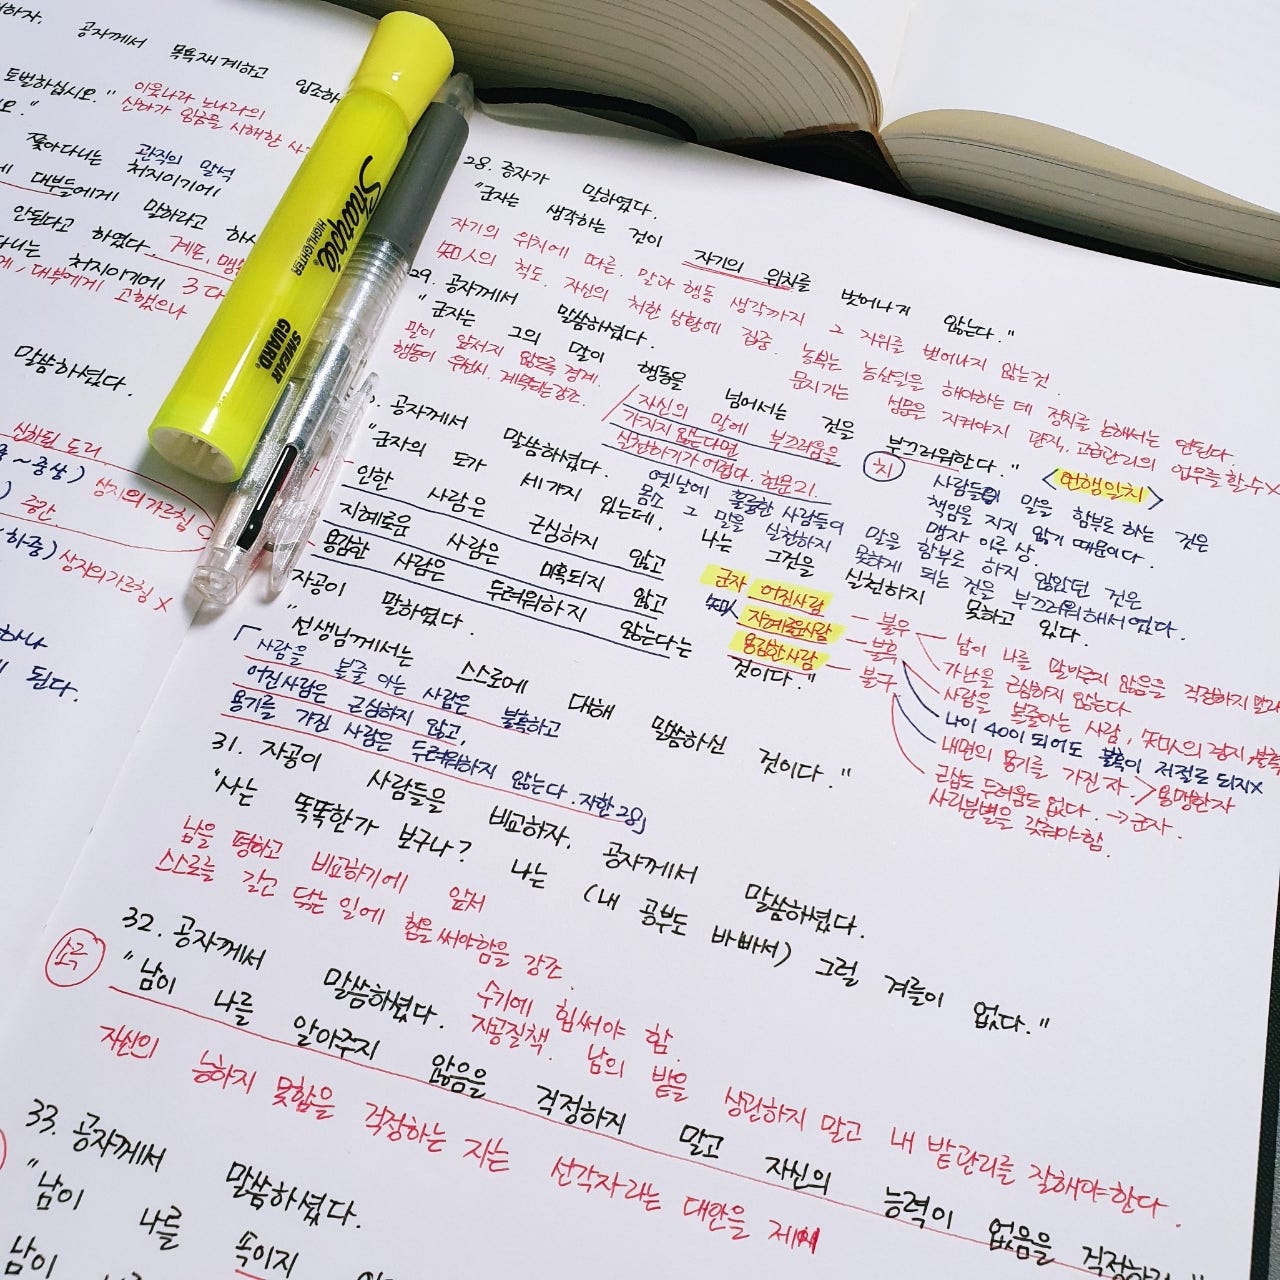 공자께서 목욕재계하고 입조하
토벌하십시오." 이웃나라 노나라의
신하가 임금을 시해한 사
요."
관직의 말석
쫓아다니는 처지이기에
대부들에게 말하라고 하
안된다고 하였다.
처지이기에 3
대부에게 고했으나
말씀하셨다.
도리
상지의 가르침
중간
(하중) 상지의가르침 X
하나
된다.
Sharpie
HIGHLIGHTER
SMEAR GUARD
28. 증자가 말하였다.
"군자는 생각하는 것이 자기의 위치를 벗어나게 않는다."
자기의 위치에 따른. 말과 행동 생각까지 그 지위를 벗어나지 않는것
知人의 척도. 자신의 처한 상황에 집중. 농부는 농산일을 해야하는 데 정치를 논해서는 안된다.
문지기는 성문을 지켜야지 관직, 고급관리의 업무를 할수X
29. 공자께서 말씀하셨다.
"군자는 그의 말이 행동을 넘어서는 것을 부끄러워한다." <언행일치>
말이 앞서지 않도록 경계.
행동이 우선시. 계속되는강조.
자신의 말에 부끄러움을
가지지 않는다면
실천하기가 어렵다. 헌문 21.
치
사람들이 말을 함부로 하는 것은
책임을 지지 않기 때문이다.
맹자 이루 상.
옛날에 훌륭한 사람들이 말을 함부로 하지 않았던 것은
몸소 그 말을 실천하지 못하게 되는 것을 부끄러워해서였다.
공자께서 말씀하셨다.
"군자의 도가 세가지 있는데, 나는 그것을 실천하지 못하고 있다.
인한 사람은 근심하지 않고
지혜로운 사람은 미혹되지 않고
용감한 사람은 두려워하지 않는다는 것이다."
군자 어진사람 — 불우
知人 지혜로운사람 — 불혹
용감한사람 — 불구
남이 나를 알아주지 않음을 걱정하지 말라
가난을 근심하지 않는다
사람을 볼줄아는 사람, 知人의 경지, 불혹
나이 40이 되어도 불혹이 저절로 되지X
내면의 용기를 가진 자. > 용맹한자
근심도 두려움도 없다. → 군자.
사리분별을 갖춰야함.
자공이 말하였다.
"선생님께서는 스스로에 대해 말씀하신 것이다."
「사람을 볼줄 아는 사람은 불혹하고
어진사람은 근심하지 않고,
용기를 가진 사람은 두려워하지 않는다. 자한 28」
31. 자공이 사람들을 비교하자. 공자께서 말씀하셨다.
"사는 똑똑한가 보구나? 나는 (내 공부도 바빠서) 그럴 겨를이 없다."
남을 평하고 비교하기에 앞서
스스로를 갈고 닦는 일에 힘을 써야함을 강조.
수기에 힘써야 함.
자공질책. 남의 밭을 상관하지 말고 내 밭관리를 잘해야한다.
32. 공자께서 말씀하셨다.
"남이 나를 알아주지 않음을 걱정하지 말고 자신의 능력이 없음을 걱정하라."
자신의 능하지 못함을 걱정하는 지는 선각자라는 대안을 제시
33. 공자께서 말씀하셨다.
"남이 나를 속이지
남이